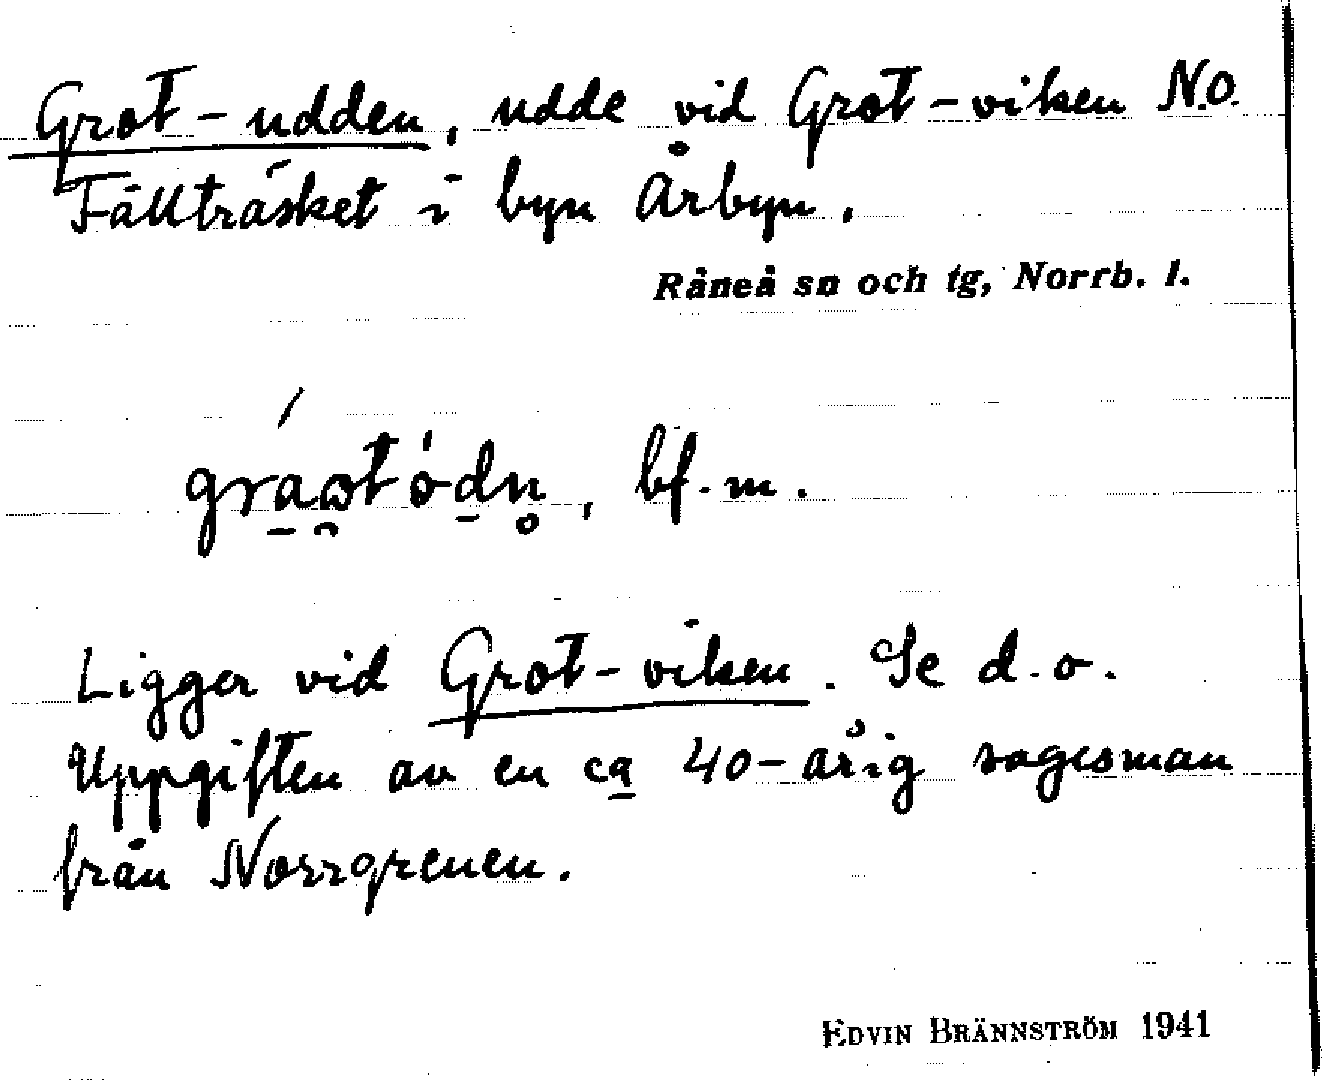 Grot-udden, udde vid Grot-viken N.O.
Fällträsket i byn Årbyn.
Råneå sn och tg, Norrb. l.
bf. m.
Ligger vid Grot-viken. Se d. o.
Uppgiften av en ca 40-årig sagesman
från Norrgrenen.
EDVIN BRÄNNSTRÖM 1941